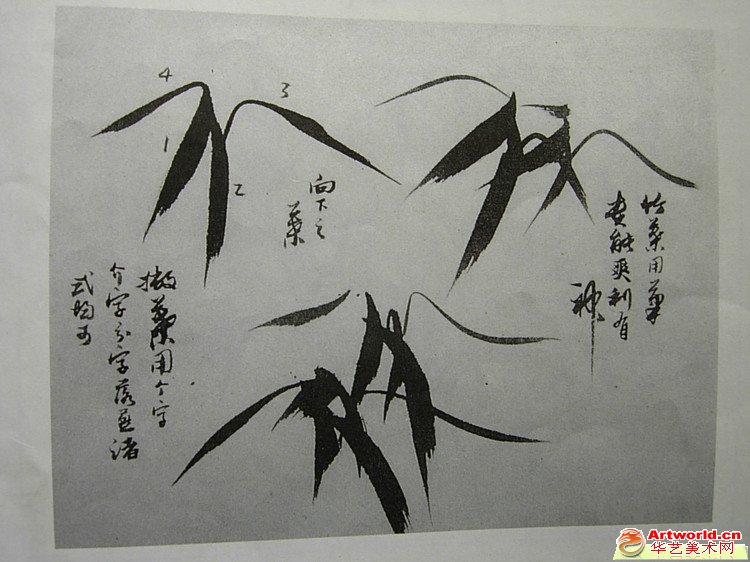 4
3
1
2
向下之
葉
竹葉用筆
要能爽利有
神
撇葉用个字
介字分字落蕉諸
式均可
Artworld.cn
华艺美术网